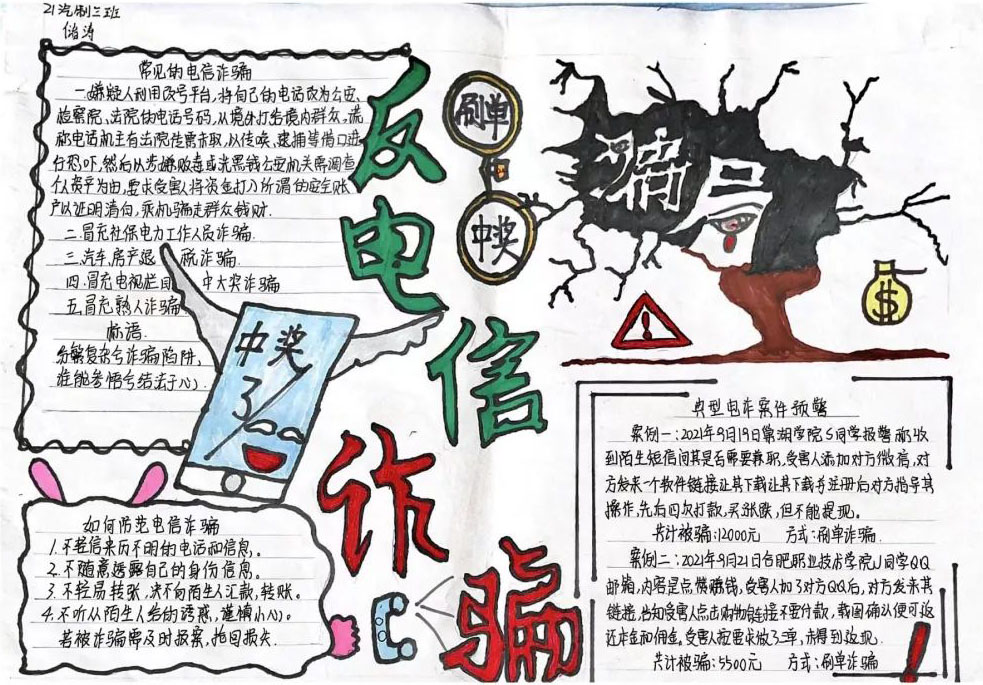 21汽制三班
储涛
常见的电信诈骗
一.嫌疑人利用改号平台,将自己的电话改为公安、
检察院、法院的电话号码,从境外打给境内群众,谎
称电话机主有法院传票未取,以传唤、逮捕等借口进
行恐吓,然后以涉嫌贩毒或洗黑钱公安机关需调查
个人资产为由,要求受害人将资金打入所谓的安全账
户以证明清白,乘机骗走群众钱财.
二.冒充社保电力工作人员诈骗.
三.汽车,房产退 税诈骗.
四.冒充电视栏目 中大奖诈骗
五.冒充熟人诈骗
标语:
纷繁复杂兮诈骗陷阱,
谁能参悟兮结法于心.
中奖
了
反电信诈骗
刷单
中奖
骗
如何防范电信诈骗
1.不轻信来历不明的电话和信息。
2.不随意透露自己的身份信息。
3.不轻易转账,决不向陌生人汇款,转账。
4.不听从陌生人给的诱惑,谨慎小心。
若被诈骗需及时报案,挽回损失.
典型电诈案件预警
案例一:2021年9月19日巢湖学院S同学报警称收
到陌生短信问其是否需要兼职,受害人添加对方微信,对
方发来一个软件链接让其下载让其下载并注册后对方指导其
操作,先后四次打款,买涨跌,但不能提现。
共计被骗:12000元 方式:刷单诈骗.
案例二:2021年9月21日合肥职业技术学院J同学QQ
邮箱,内容是点赞赚钱,受害人加了对方QQ后,对方发来其
链接,告知受害人点击购物链接不要付款,截图确认便可返
还本金和佣金.受害人按要求做了三单,未得到返现.
共计被骗:5500元 方式:刷单诈骗